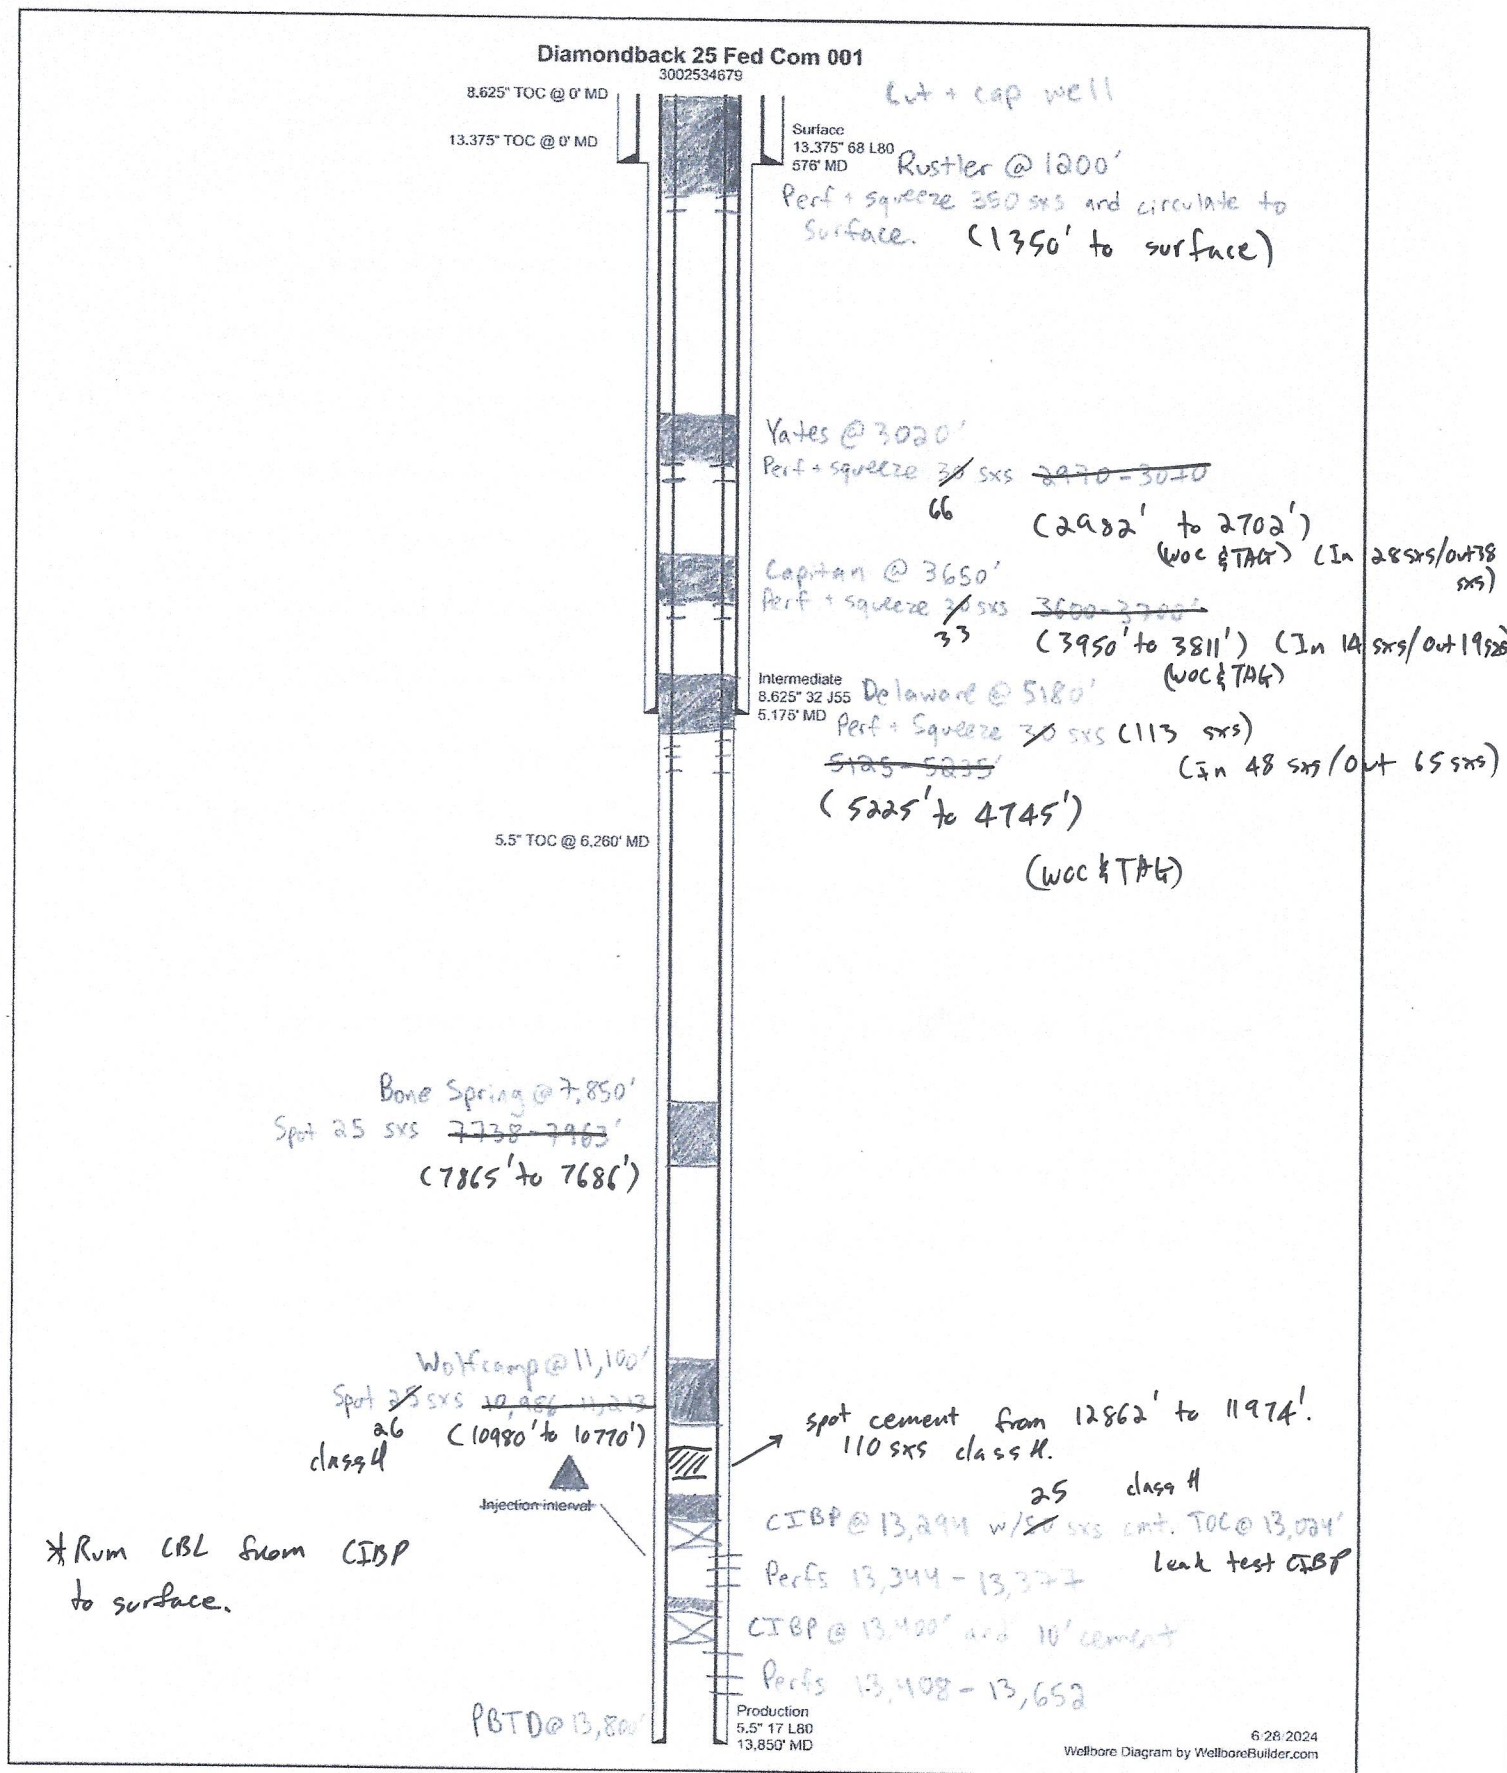 Diamondback 25 Fed Com 001
3002534679
8.625" TOC @ 0' MD
13.375" TOC @ 0' MD
Cut + cap well
Surface
13.375" 68 L80
576' MD
Rustler @ 1200'
Perf + squeeze 350 sxs and circulate to
Surface. (1350' to surface)
Yates @ 3020'
Perf + squeeze 30 sxs 2970-3070
66
(2982' to 2702')
(WOC & TAG) (In 28 sxs/out 38
sxs)
Capitan @ 3650'
Perf + squeeze 30 sxs 3600-3700'
33
(3950' to 3811') (In 14 sxs/out 19 sxs)
(WOC & TAG)
Intermediate
8.625" 32 J55
5,175' MD
Delaware @ 5180'
Perf + Squeeze 30 sxs (113 sxs)
5125-5235'
(In 48 sxs/out 65 sxs)
(5225' to 4745')
(WOC & TAG)
5.5" TOC @ 6,260' MD
Bone Spring @ 7,850'
Spot 25 sxs 7738-7963'
(7865' to 7686')
Wolfcamp @ 11,100'
Spot 25 sxs 10,986-11,213
26
class H
(10980' to 10770')
Injection interval
spot cement from 12862' to 11974'.
110 sxs class H.
25 class H
CIBP @ 13,294 w/50 sxs cmt. TOC @ 13,024'
leak test CIBP
Perfs 13,344-13,377
* Rum CBL from CIBP
to surface.
CIBP @ 13,400' and 10' cement
Perfs 13,408-13,652
PBTD @ 13,800'
Production
5.5" 17 L80
13,850' MD
6/28/2024
Wellbore Diagram by WellboreBuilder.com